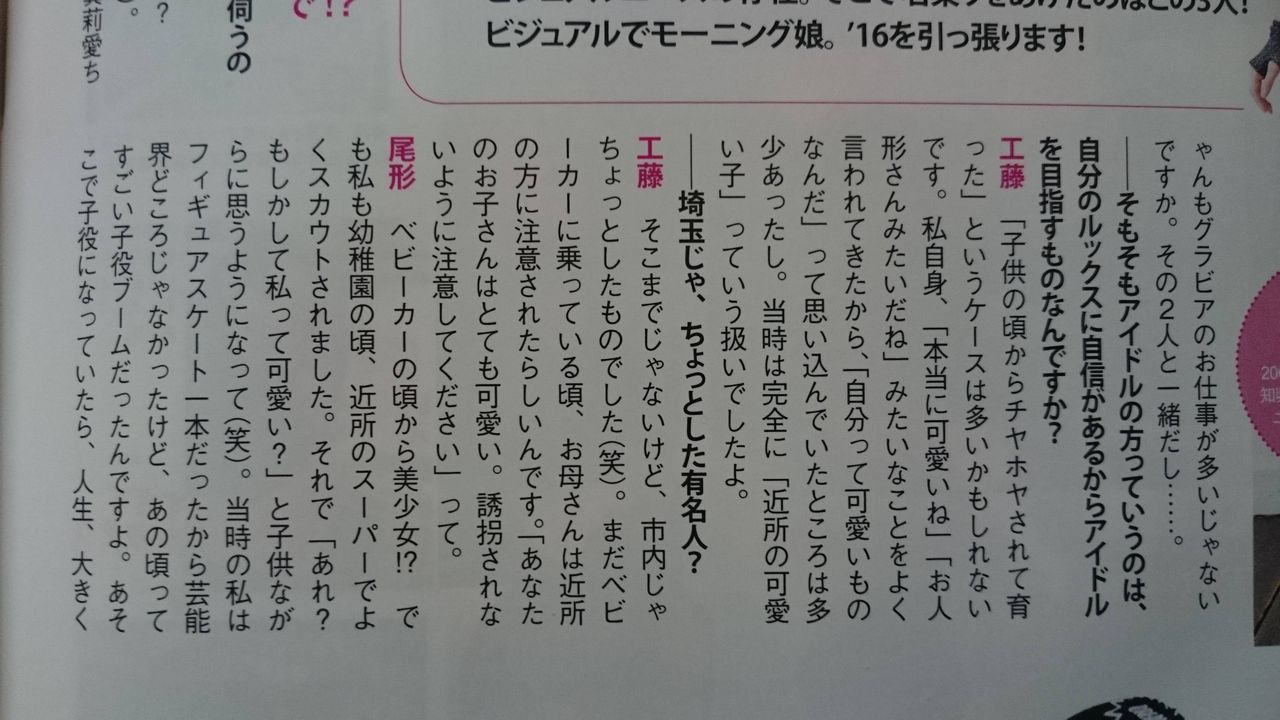 ビジュアルでモーニング娘。'16を引っ張ります!
ゃんもグラビアのお仕事が多いじゃない
ですか。その2人と一緒だし……。
――そもそもアイドルの方っていうのは、
自分のルックスに自信があるからアイドル
を目指すものなんですか?
工藤 「子供の頃からチヤホヤされて育
った」というケースは多いかもしれない
です。私自身、「本当に可愛いね」「お人
形さんみたいだね」みたいなことをよく
言われてきたから、「自分って可愛いもの
なんだ」って思い込んでいたところは多
少あったし。当時は完全に「近所の可愛
い子」っていう扱いでしたよ。
――埼玉じゃ、ちょっとした有名人?
工藤 そこまでじゃないけど、市内じゃ
ちょっとしたものでした(笑)。まだベビ
ーカーに乗っている頃、お母さんは近所
の方に注意されたらしいんです。「あなた
のお子さんはとても可愛い。誘拐されな
いように注意してください」って。
尾形 ベビーカーの頃から美少女!? で
も私も幼稚園の頃、近所のスーパーでよ
くスカウトされました。それで「あれ?
もしかして私って可愛い?」と子供なが
らに思うようになって(笑)。当時の私は
フィギュアスケート一本だったから芸能
界どころじゃなかったけど、あの頃って
すごい子役ブームだったんですよ。あそ
こで子役になっていたら、人生、大きく
で!?
伺うの
?
莉愛ち